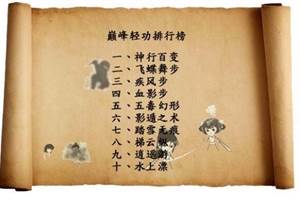 巅峰轻功排行榜
一、神行百变
二、飞蝶舞步
三、疾风步
四、血影步
五、五毒幻形
六、影遁之术
七、踏雪无痕
八、梯云纵
九、逍遥游
十、水上漂